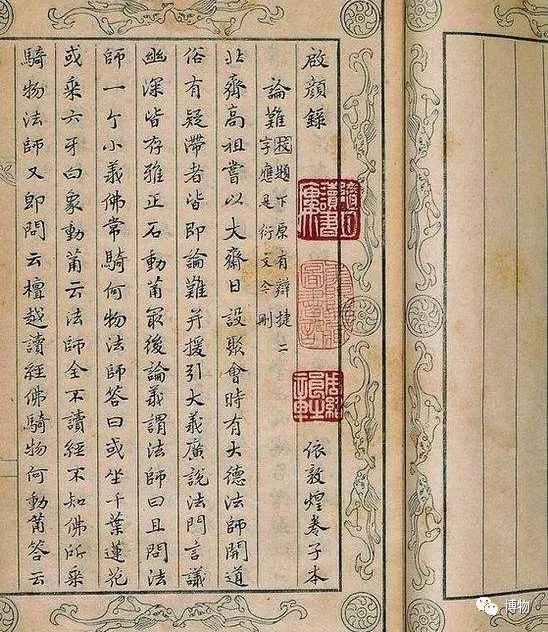 啟顏錄
依敦煌卷子本
論難
按題下原有辯捷二
字應是衍文今刪
北齊高祖嘗以大齋日設聚會時有大德法師開道
俗有疑滯者皆即論難并援引大義廣說法門言議
幽深皆存雅正石動莆最後論義謂法師曰且問法
師一个小義佛常騎何物法師答曰或坐千葉蓮花
或乘六牙白象動莆云法師全不讀經不知佛所乘
騎物法師又即問云檀越讀經佛騎物何動莆答云
博物